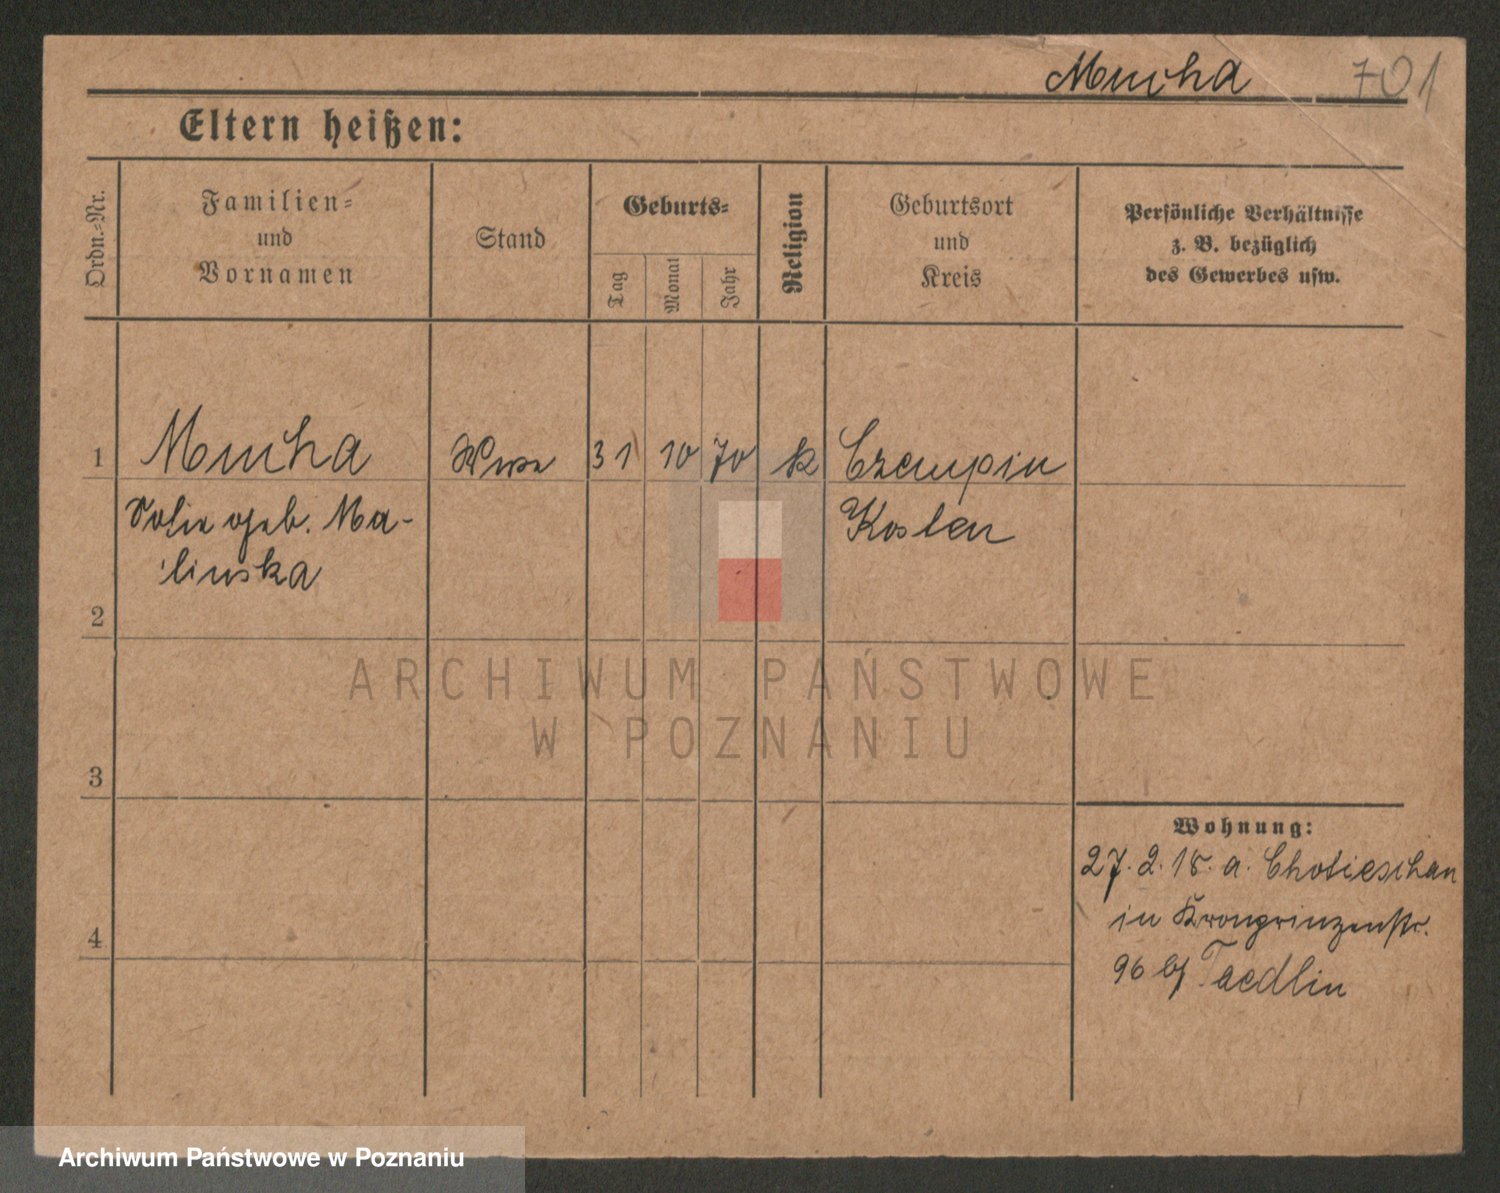 Mucha 701
Eltern heißen:
Ordn.-Nr.
Familien-
und
Vornamen
Stand
Geburts-
Tag
Monat
Jahr
Religion
Geburtsort
und
Kreis
Persönliche Verhältnisse
z. B. bezüglich
des Gewerbes usw.
1 Mucha Wwe 31 10 70 k Czempin
Sofie geb. Ma- Kosten
linska
2
ARCHIWUM PAŃSTWOWE
W POZNANIU
3
Wohnung:
27. 2. 18. a.
in Kronprinzenstr.
4
96 bf
Archiwum Państwowe w Poznaniu